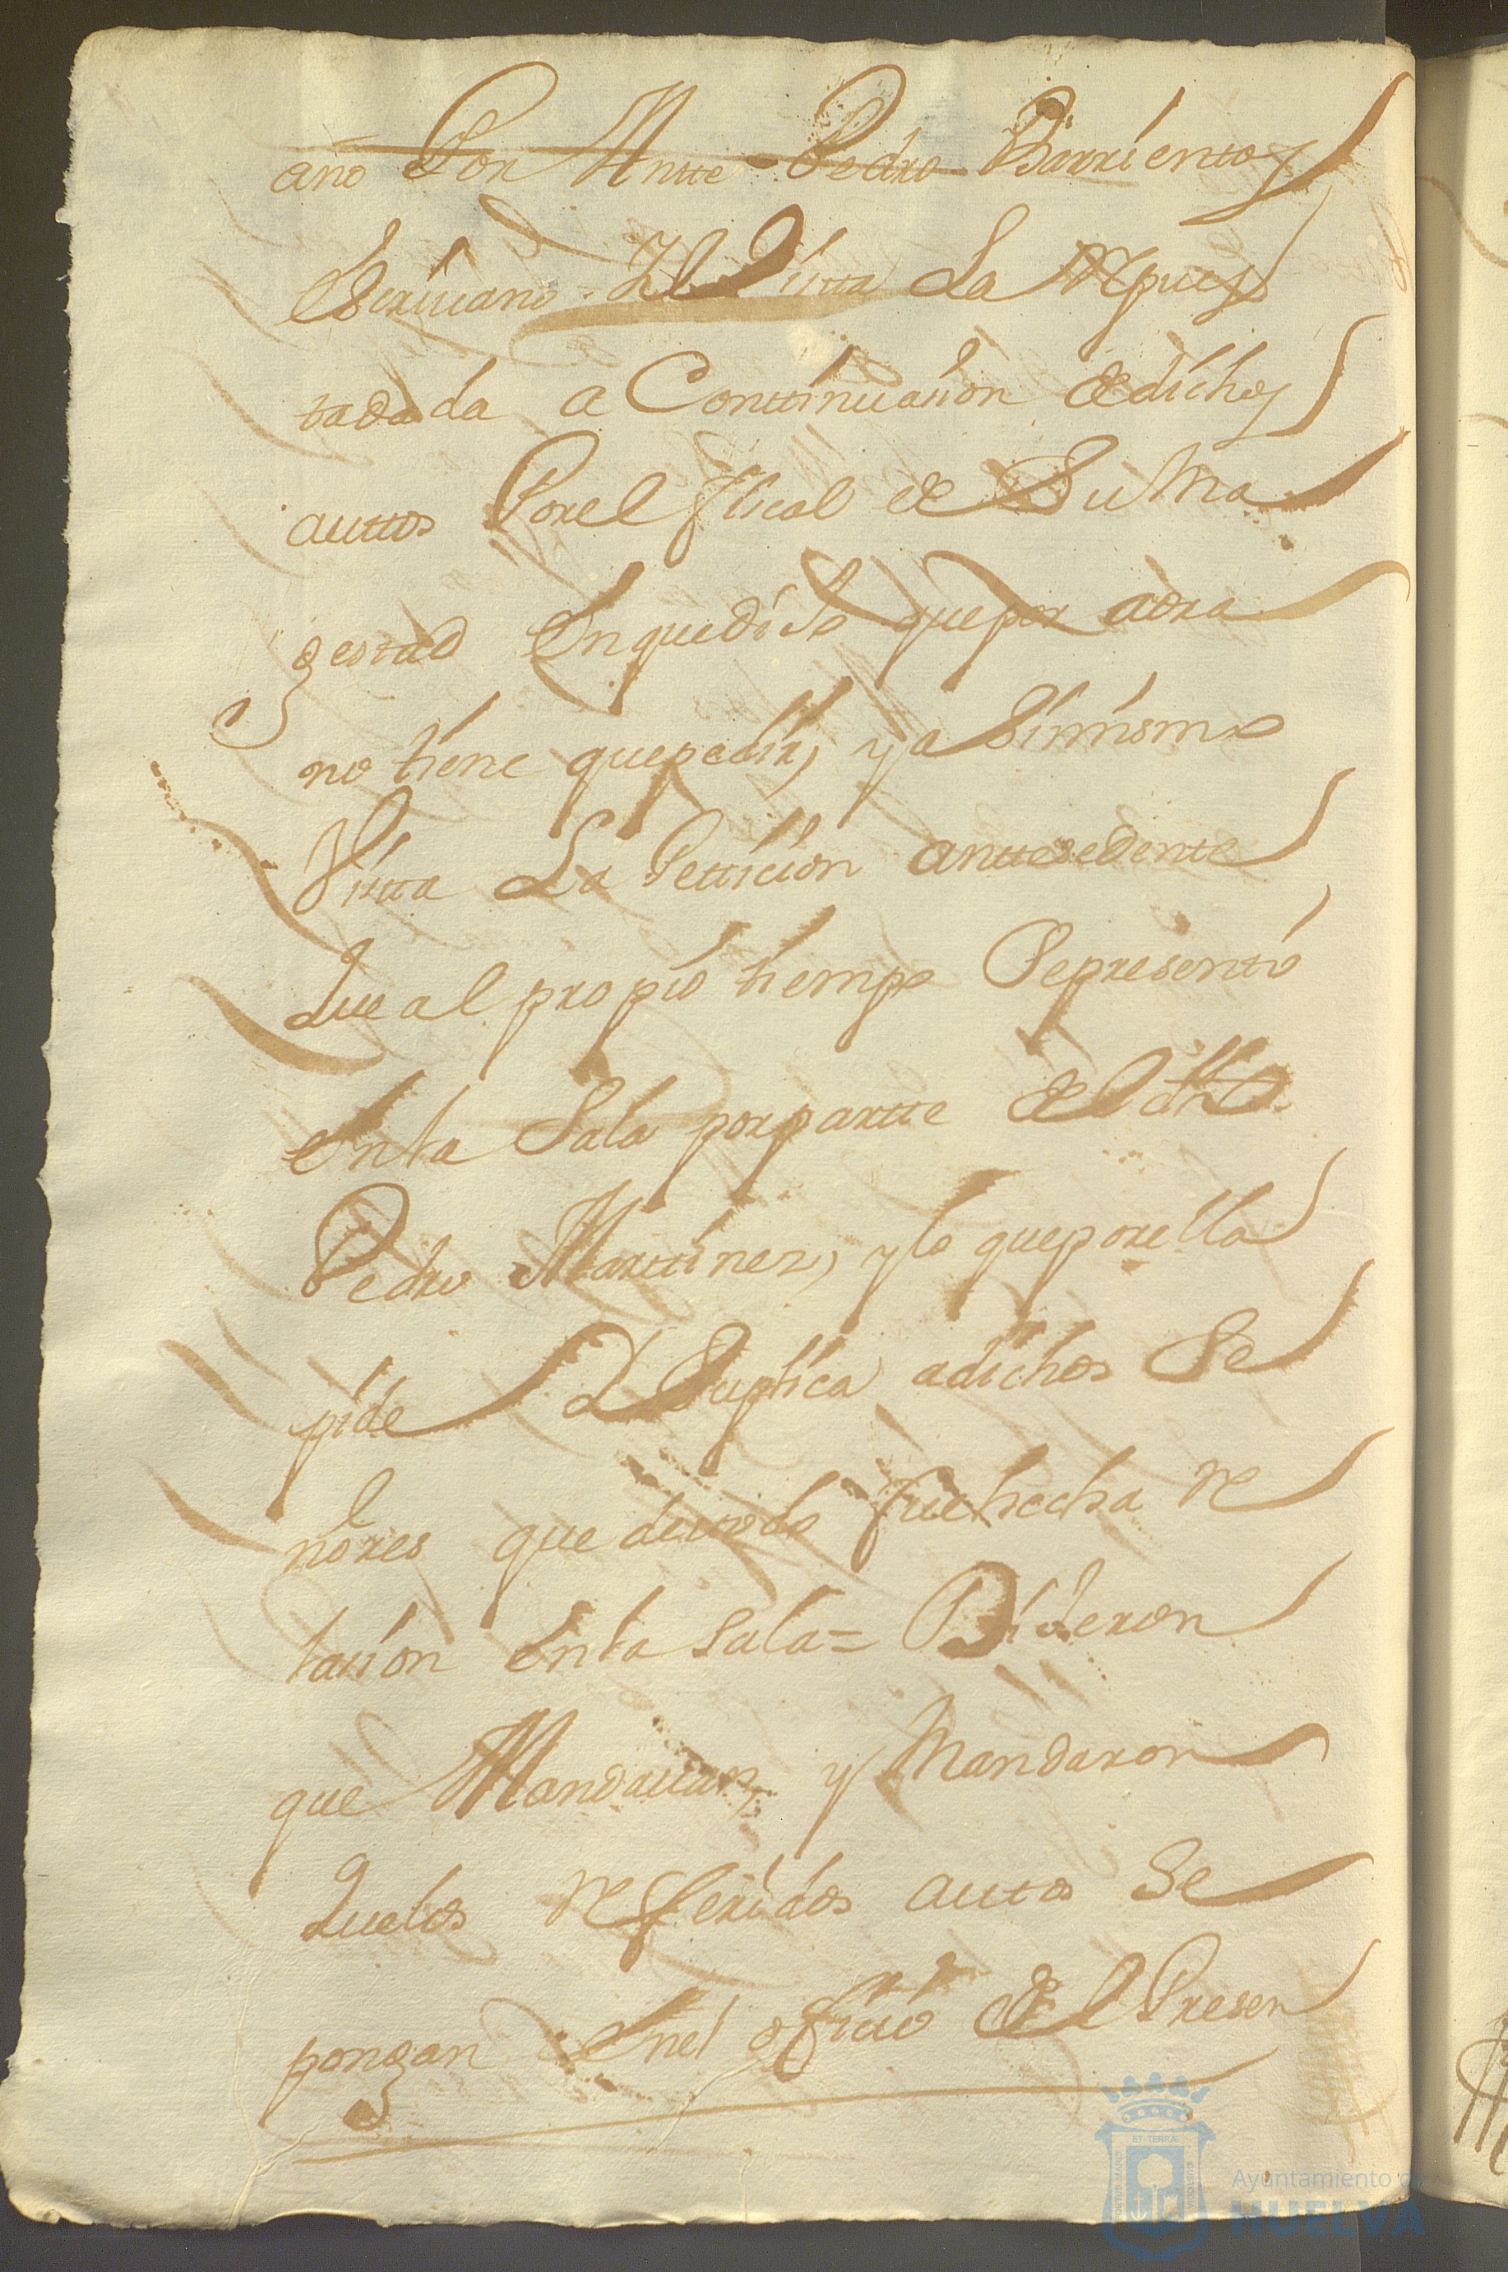 año Por Antte Pedro Barrientos
Escriuano. Y Vista La Respues
ta dada a Conttinuazion de dichos
auttos Por el fiscal de Su Ma
gestad En que diʒe que por aora
no tiene que pedir, y asimismo
Vista La Pettizion anttesedente
Que al propio tiempo Se presentó
En la Sala por partte de el dho
Pedro Marttinez, y lo que por ella
pide Y Suplica a dichos Se
ñores que de todo fue hecha re
lazion en la sala = Dixeron
que Mandauan, y Mandaron
Que los referidos autos Se
pongan En el ofizio de el Presen
Ayuntamiento de
HUELVA